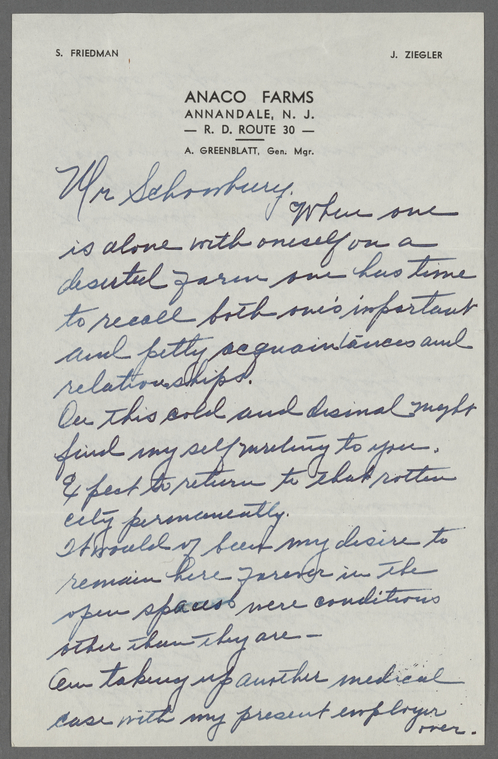 S. FRIEDMAN
J. ZIEGLER
ANACO FARMS
ANNANDALE, N. J.
— R. D. ROUTE 30 —
A. GREENBLATT, Gen. Mgr.
Mr Schomburg.
When one
is alone with oneself on a
deserted farm one has time
to recall both one's important
and petty acquaintances and
relationships.
On this cold and dismal night
find my self writing to you.
Expect to return to that rotten
city permanently.
It would of been my desire to
remain here forever in the
open spaces were conditions
other than they are —
Am taking up another medical
case with my present employer
over.